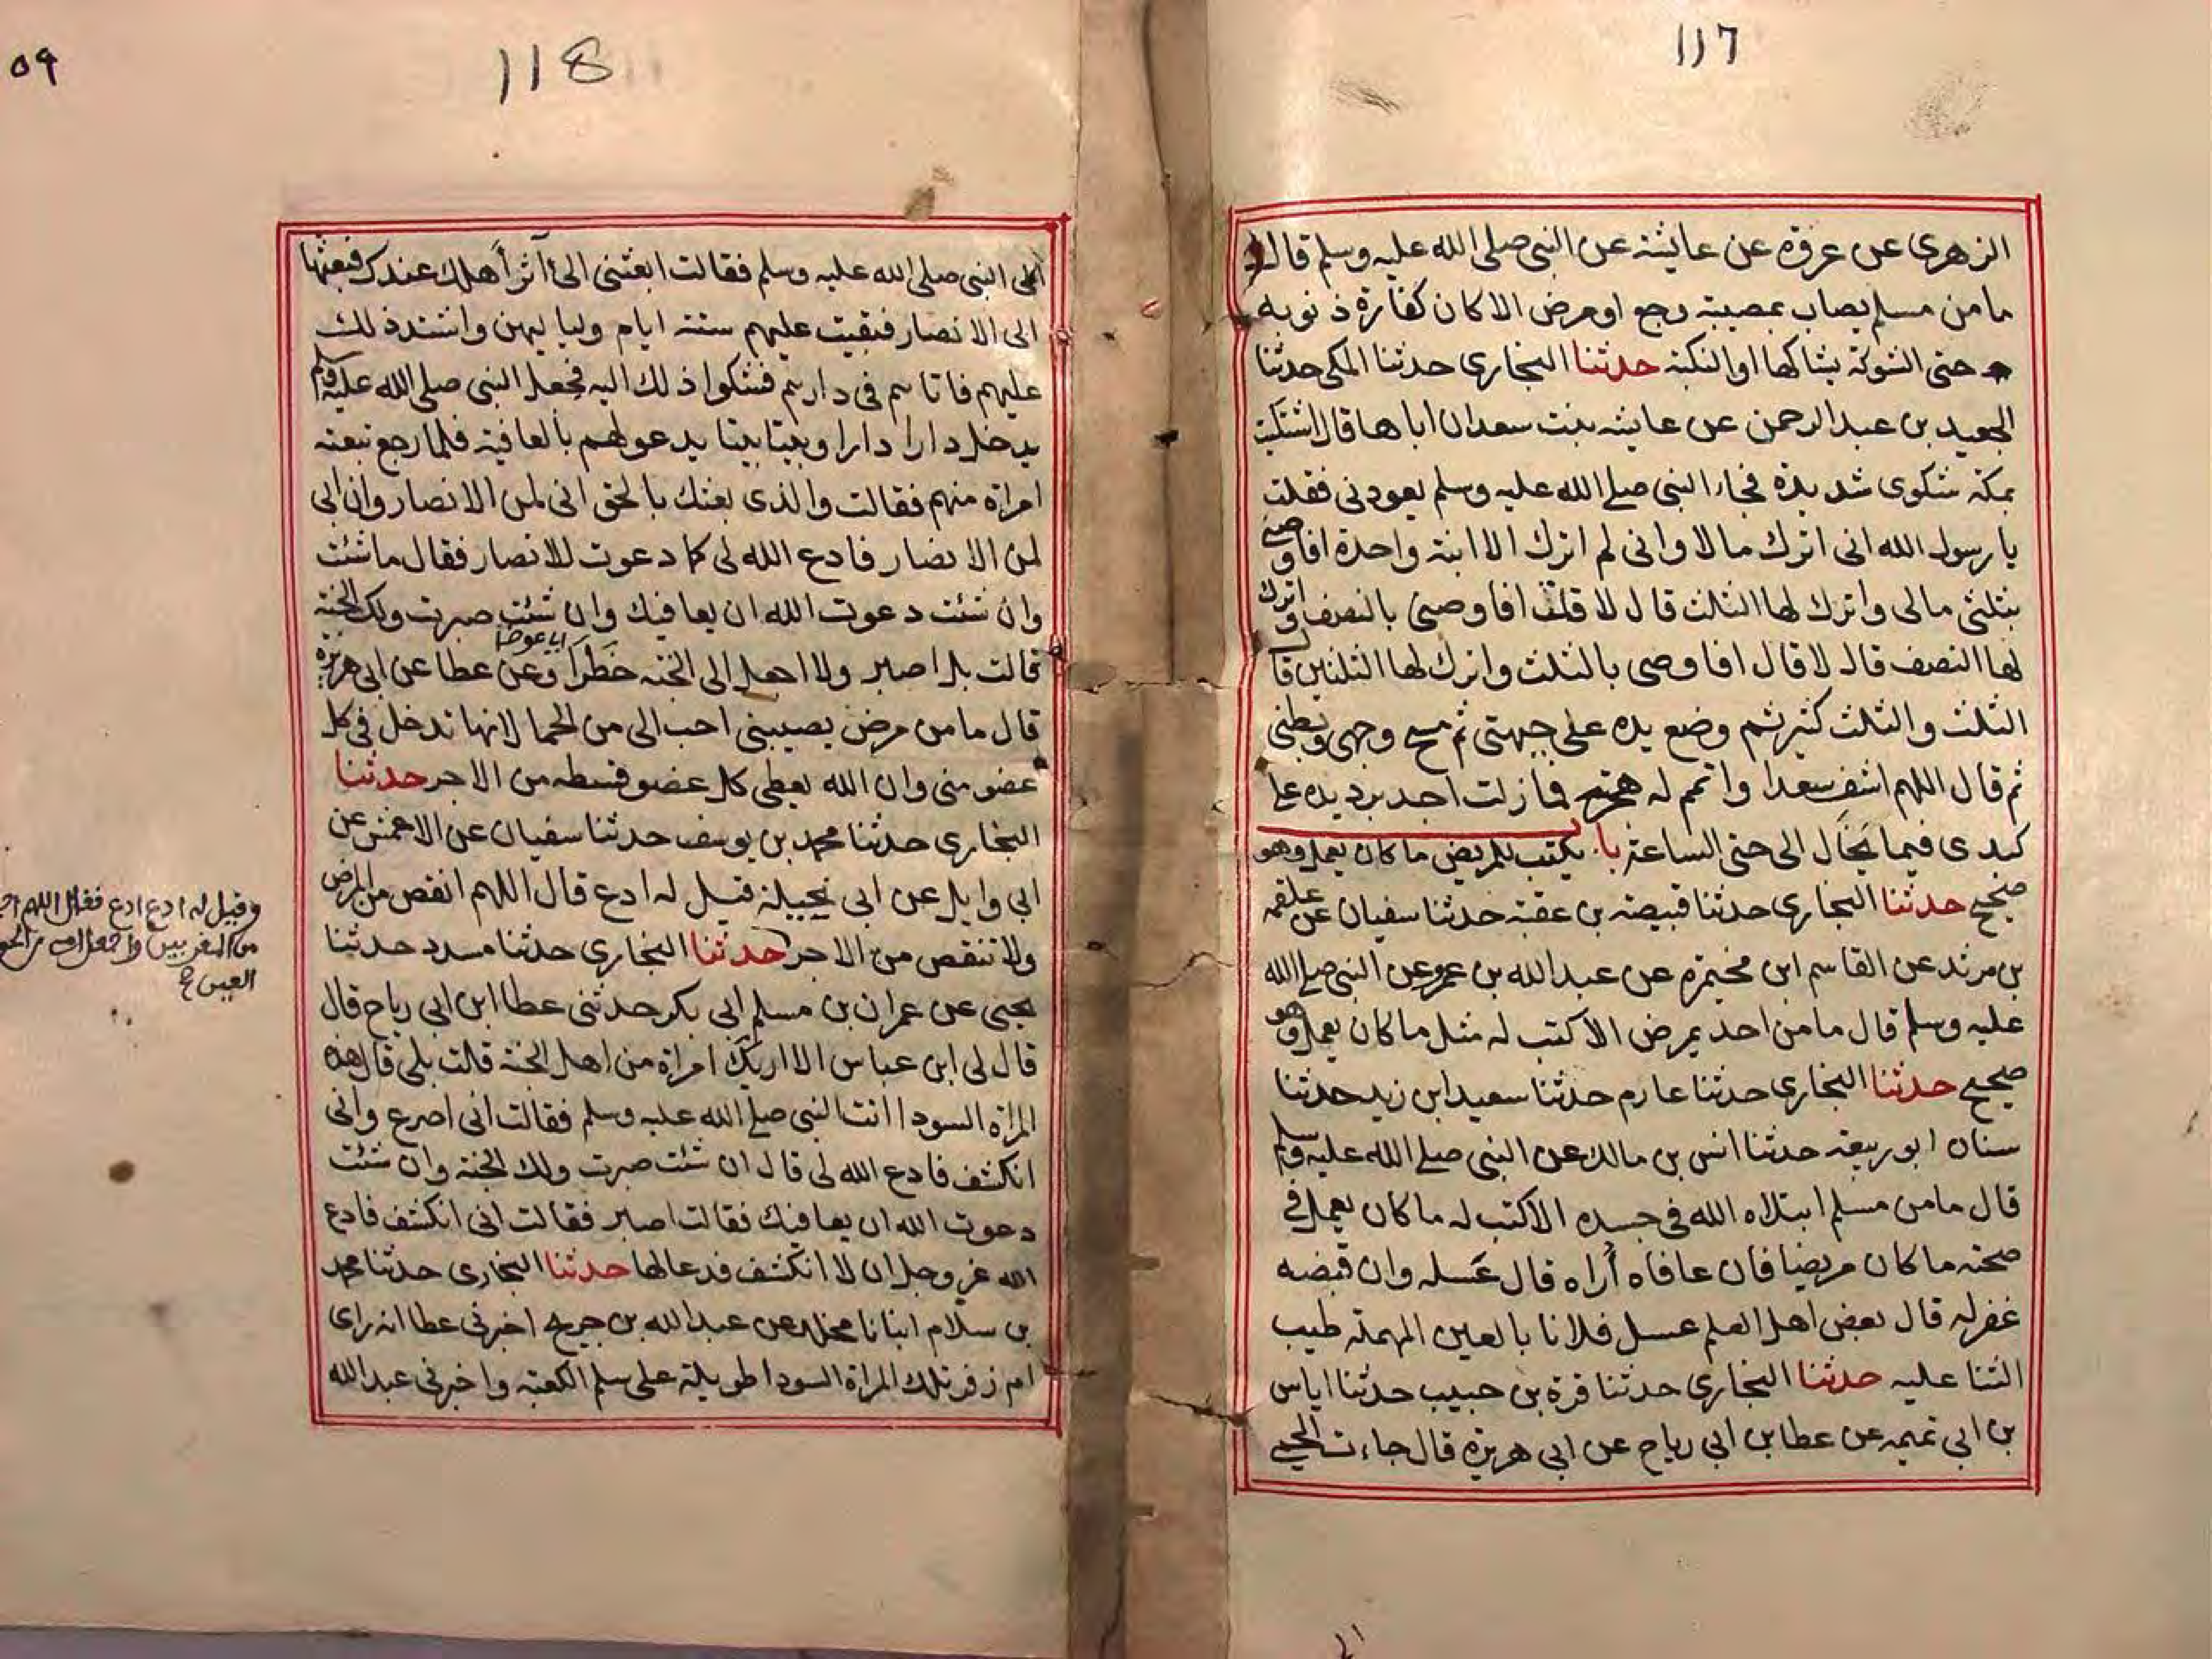 117
الزهري عن عروة عن عايشة عن النبي صلى الله عليه وسلم قال
ما من مسلم يصاب بمصيبة وجع او مرض الا كان كفارة ذنوبه
حتى الشوكة يشاكها او النكبة حدثنا البخاري حدثنا المكي حدثنا
الجعيد بن عبد الرحمن عن عايشه بنت سعد ان اباها قال اشتكيت
بمكة شكوى شديدة فجاء النبي صلى الله عليه وسلم يعودني فقلت
يا رسول الله اني اترك مالا واني لم اترك الا ابنة واحدة افاوصي
بثلثي مالي واترك لها الثلث قال لا قلت افاوصي بالنصف واترك
لها النصف قال لا قال افاوصي بالثلث واترك لها الثلثين قال
الثلث والثلث كثير ثم وضع يده على جبهتي ثم مسح وجهي وبطني
ثم قال اللهم اشف سعدا واتمم له هجرته فما زلت اجد برد يده على
كبدي فيما يخال الي حتى الساعة باب يكتب للمريض ما كان يعمل وهو
صحيح حدثنا البخاري حدثنا قبيصة بن عقبة حدثنا سفيان عن علقمه
بن مرثد عن القاسم ابن مخيمره عن عبد الله بن عمرو عن النبي صلى الله
عليه وسلم قال ما من احد يمرض الا كتب له مثل ما كان يعمل وهو
صحيح حدثنا البخاري حدثنا عارم حدثنا سعيد ابن زيد حدثنا
سنان ابو ربيعه حدثنا انس بن مالك عن النبي صلى الله عليه وسلم
قال ما من مسلم ابتلاه الله في جسده الا كتب له ما كان يعمل في
صحته ما كان مريضا فان عافاه أراه قال عسله وان قبضه
غفر له قال بعض اهل العلم عسل فلانا بالعين المهملة طيب
الثنا عليه حدثنا البخاري حدثنا قرة بن حبيب حدثنا اياس
بن ابي تميمه عن عطا بن ابي رباح عن ابي هريرة قال جاءت الحمى
118
٥٩
الى النبي صلى الله عليه وسلم فقالت ابعثني الى آثر أهلك عندك فبعثها
الى الانصار فبقيت عليهم ستة ايام ولياليهن واشتد ذلك
عليهم فاتاهم في دارهم فشكوا ذلك اليه فجعل النبي صلى الله عليه وسلم
يدخل دارا دارا وبيتا بيتا يدعو لهم بالعافية فلما رجع تبعته
امراة منهم فقالت والذي بعثك بالحق اني لمن الانصار وان ابي
لمن الانصار فادع الله لي كما دعوت للانصار فقال ما شئت
وان شئت دعوت الله ان يعافيك وان شئت صبرت ولك الجنة
قالت بل اصبر ولا اجعل الى الجنه خطرا وعن عطا عن ابي هريرة
قال ما من مرض يصيبني احب الى من الحما لانها تدخل في كل
عضو مني وان الله يعطي كل عضو قسطه من الاجر حدثنا
البخاري حدثنا محمد بن يوسف حدثنا سفيان عن الاعمش عن
ابي وايل عن ابي نحيلة قيل له ادع قال اللهم انقص من المرض
ولا تنقص من الاجر حدثنا البخاري حدثنا مسدد حدثنا
يحيى عن عمران بن مسلم ابي بكر حدثني عطا ابن ابي رباح قال
قال لي ابن عباس الا اريك امراة من اهل الجنة قلت بلى قال هذه
المراة السودا اتت النبي صلى الله عليه وسلم فقالت اني اصرع واني
انكشف فادع الله لي قال ان شئت صبرت ولك الجنة وان شئت
دعوت الله ان يعافيك فقالت اصبر فقالت اني انكشف فادع
الله عز وجل ان لا انكشف فدعا لها حدثنا البخاري حدثنا محمد
بن سلام انبانا مخلد عن عبد الله بن جريج اخبرني عطا انه راى
ام زفر تلك المراة السودا طويلة على سلم الكعبة واخبرني عبد الله
وقيل له ادع ادع فقال اللهم
من المقربين واجعل امي من الحور
العين